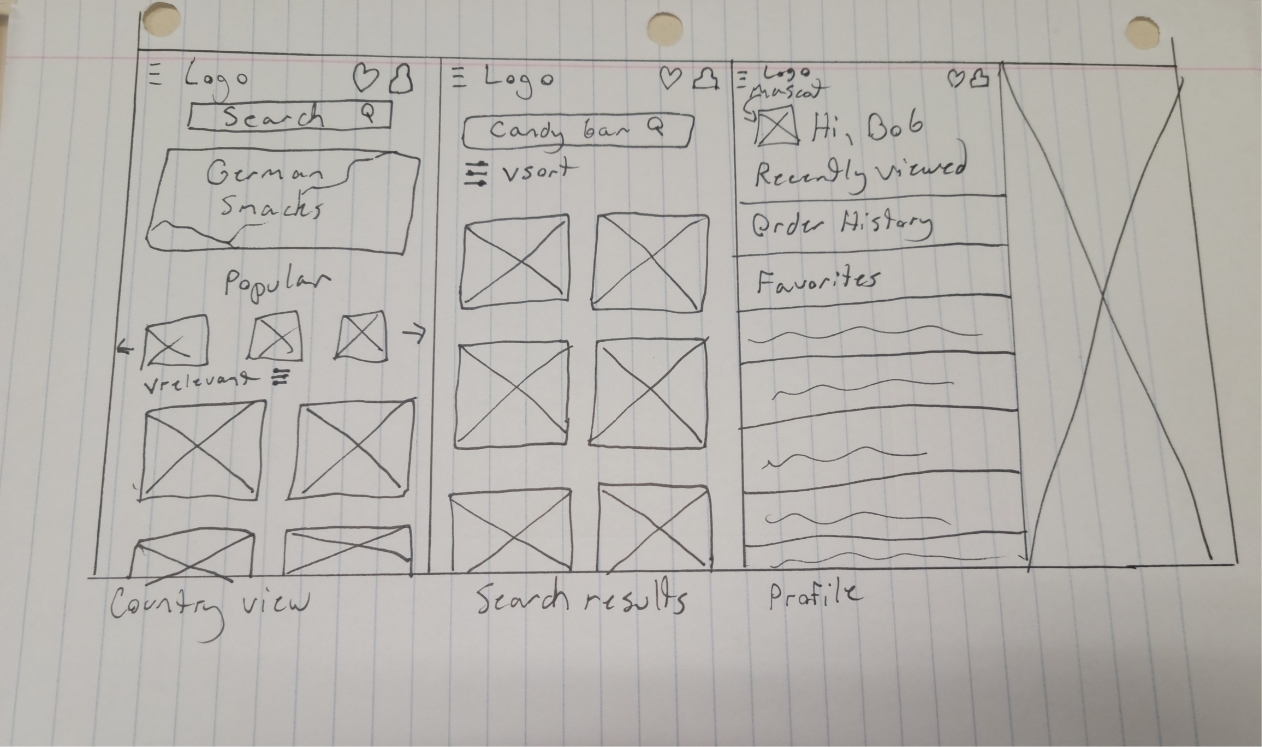 Logo
Search
German
Snacks
Popular
vrelevant
Country view
Logo
Candy bar
vsort
Search results
Logo
mascot
Hi, Bob
Recently viewed
Order History
Favorites
Profile